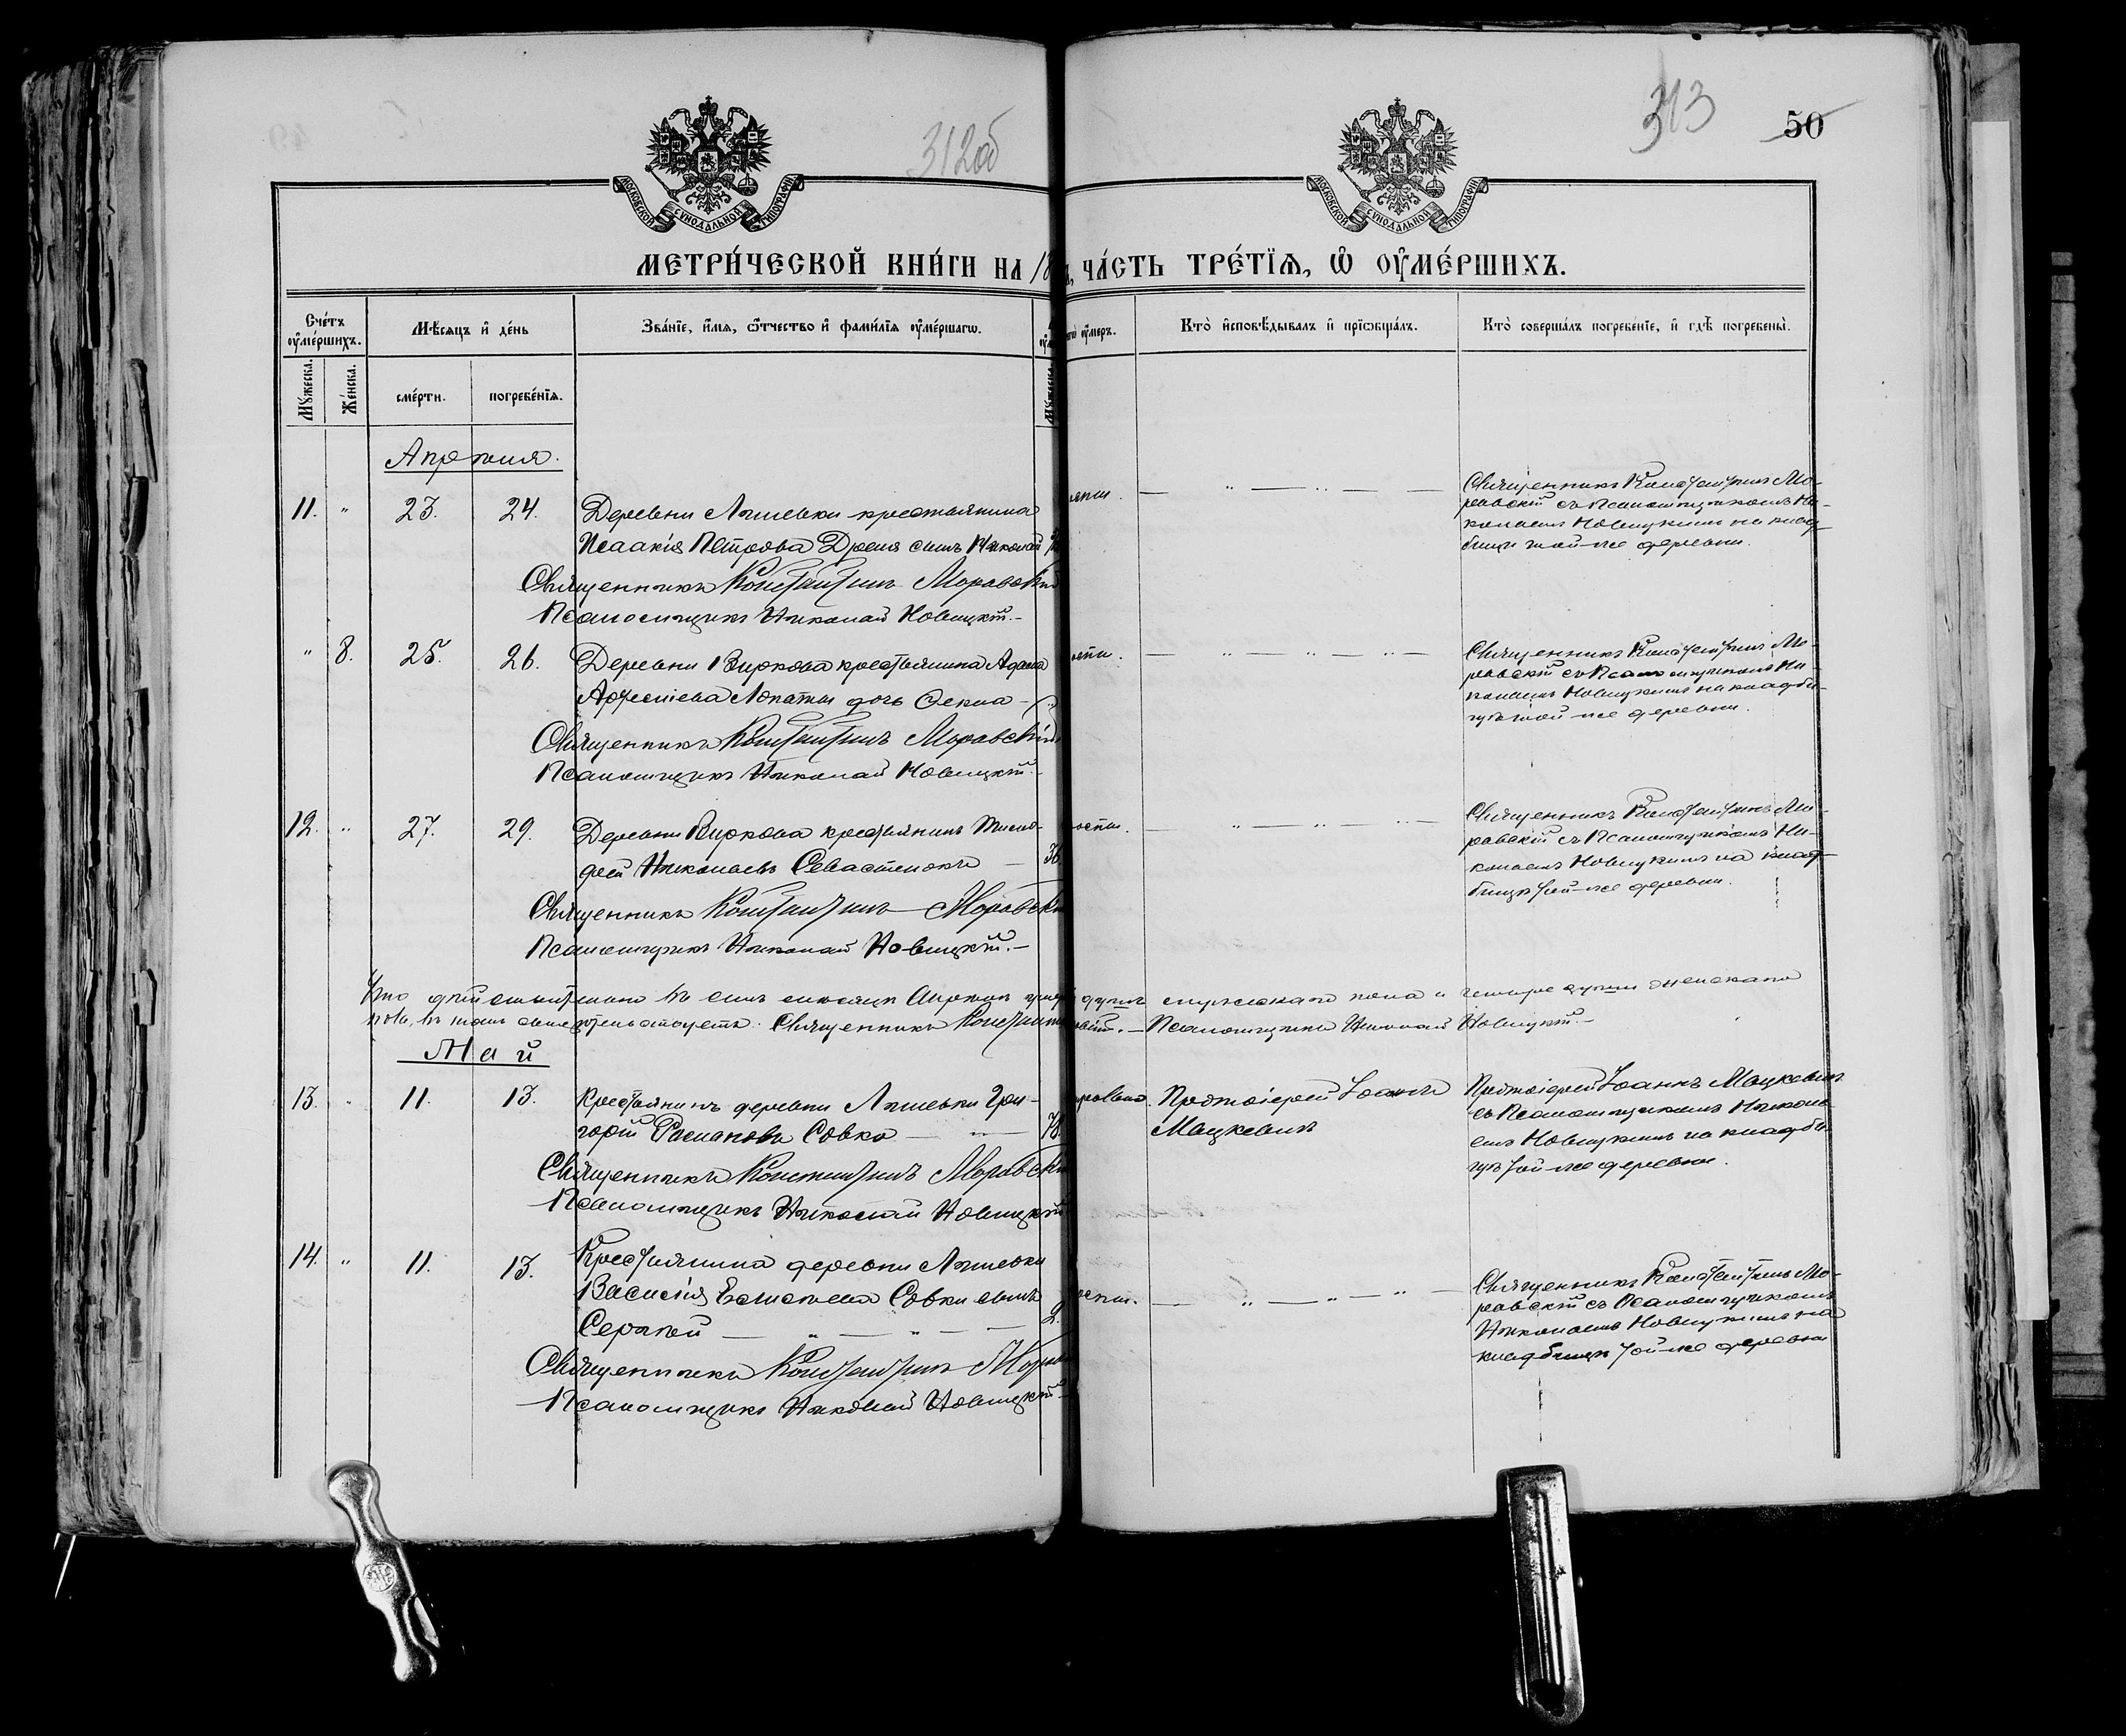 312об
313
50
МОСКОВСКОЙ СѴНОДАЛЬНОЙ ТИПОГРАФІИ
МОСКОВСКОЙ СѴНОДАЛЬНОЙ ТИПОГРАФІИ
МЕТРИ́ЧЕСКОЙ КНИ́ГИ НА 18
ЧА́СТЬ ТРЕ́ТІѦ, Ѡ ОУ҆МЕ́РШИХЪ.
Сче́тъ оу҆ме́ршихъ.
Мѣ́сяцъ и҆ де́нь
Зва́нїе, и҆́мя, ѻ҆́тчество и҆ фами́лїя оу҆ме́ршагѡ.
оу҆меръ.
Кто̀ и҆сповѣ́дывалъ и҆ прїѡбща́лъ.
Кто̀ соверша́лъ погребе́нїе, и҆ гдѣ̀ погребены̀.
Мꙋ́жеска.
Же́нска.
сме́рти.
погребе́нїя.
Апрѣля.
11. " 23. 24.
Деревни Лышевки крестьянина
Исаакія Петрова Дремя сынъ Николай
Священникъ Константинъ Моравскій
Псаломщикъ Николай Новицкій.
Священникъ Константинъ Мо-
равскій съ Псаломщикомъ Ни-
колаемъ Новицкимъ на клад-
бищѣ той-же деревни.
" 8. 25. 26.
Деревни Виркова крестьянина Адама
Лопаты дочь Ѳекла
Священникъ Константинъ Моравскій
Псаломщикъ Николай Новицкій.
Священникъ Константинъ Мо-
равскій съ Псаломщикомъ Ни-
колаемъ Новицкимъ на кладби-
щѣ той-же деревни.
12. " 27. 29.
Деревни Виркова крестьянинъ Тимо-
фей Николаевъ Севастенокъ — 36
Священникъ Константинъ Моравскій
Псаломщикъ Николай Новицкій.
Священникъ Константинъ Мо-
равскій съ Псаломщикомъ Ни-
колаемъ Новицкимъ на клад-
бищѣ той-же деревни.
Что дѣйствительно въ семъ мѣсяцѣ Апрѣлѣ душъ мужскаго пола и четыре души женскаго
пола, въ томъ свидѣтельствуетъ Священникъ Псаломщикъ Николай Новицкій.
Май
13. 11. 13.
Крестьянинъ деревни Лышевки Гри-
горій Романовъ Совко — 78
Священникъ Константинъ Моравскій
Псаломщикъ Николай Новицкій
Протоіерей Іоаннъ
Мацкевичъ
Протоіерей Іоаннъ Мацкевичъ
съ Псаломщикомъ Никола-
емъ Новицкимъ на кладби-
щѣ той-же деревни.
14. " 11. 13.
Крестьянина деревни Лышевки
Василія Совки сынъ
Сергѣй — 2.
Священникъ Константинъ
Псаломщикъ Николай Новицкій
Священникъ Константинъ Мо-
равскій съ Псаломщикомъ
Николаемъ Новицкимъ на
кладбищѣ той-же деревни